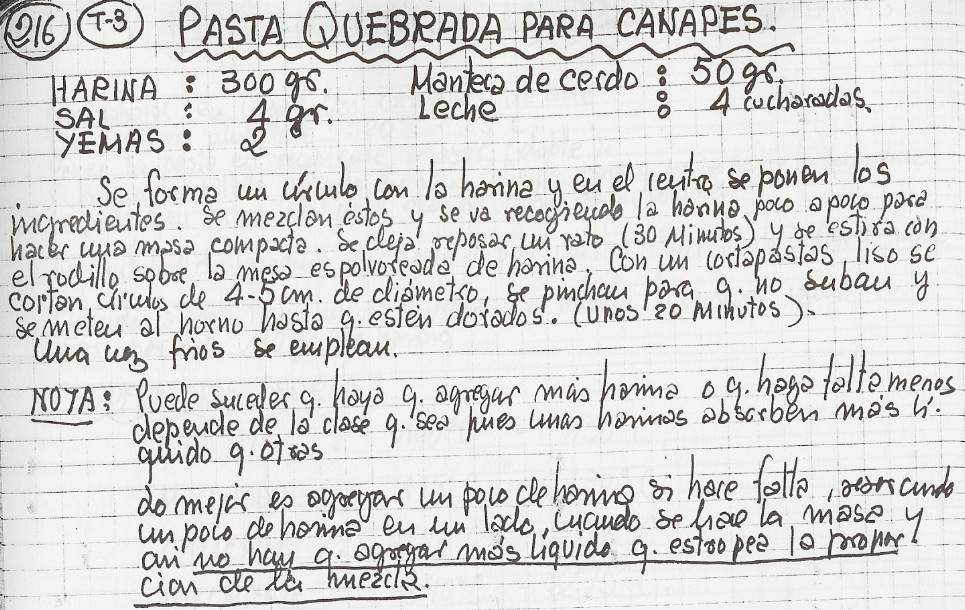 216 T-3 PASTA QUEBRADA PARA CANAPES.
HARINA : 300 gr. Manteca de cerdo : 50 gr.
SAL : 4 gr. Leche : 4 cucharadas.
YEMAS : 2
Se forma un circulo con la harina y en el centro se ponen los
ingredientes. Se mezclan estos y se va recogiendo la harina poco a poco para
hacer una masa compacta. Se deja reposar un rato (30 Minutos) y se estira con
el rodillo sobre la mesa espolvoreada de harina. Con un cortapastas liso se
cortan circulos de 4-5 cm. de diámetro, se pinchan para q. no suban y
se meten al horno hasta q. esten dorados. (unos 20 Minutos).
Una vez frios se emplean.
NOTA: Puede suceder q. haya q. agregar más harina o q. haga falta menos
depende de la clase q. sea pues unas harinas absorben más lí-
quido q. otras
Lo mejor es agregar un poco de harina si hace falta, reservando
un poco de harina en un lado, cuando se hace la masa y
asi no hay q. agregar más liquido q. estropea la propor-
cion de la mezcla.